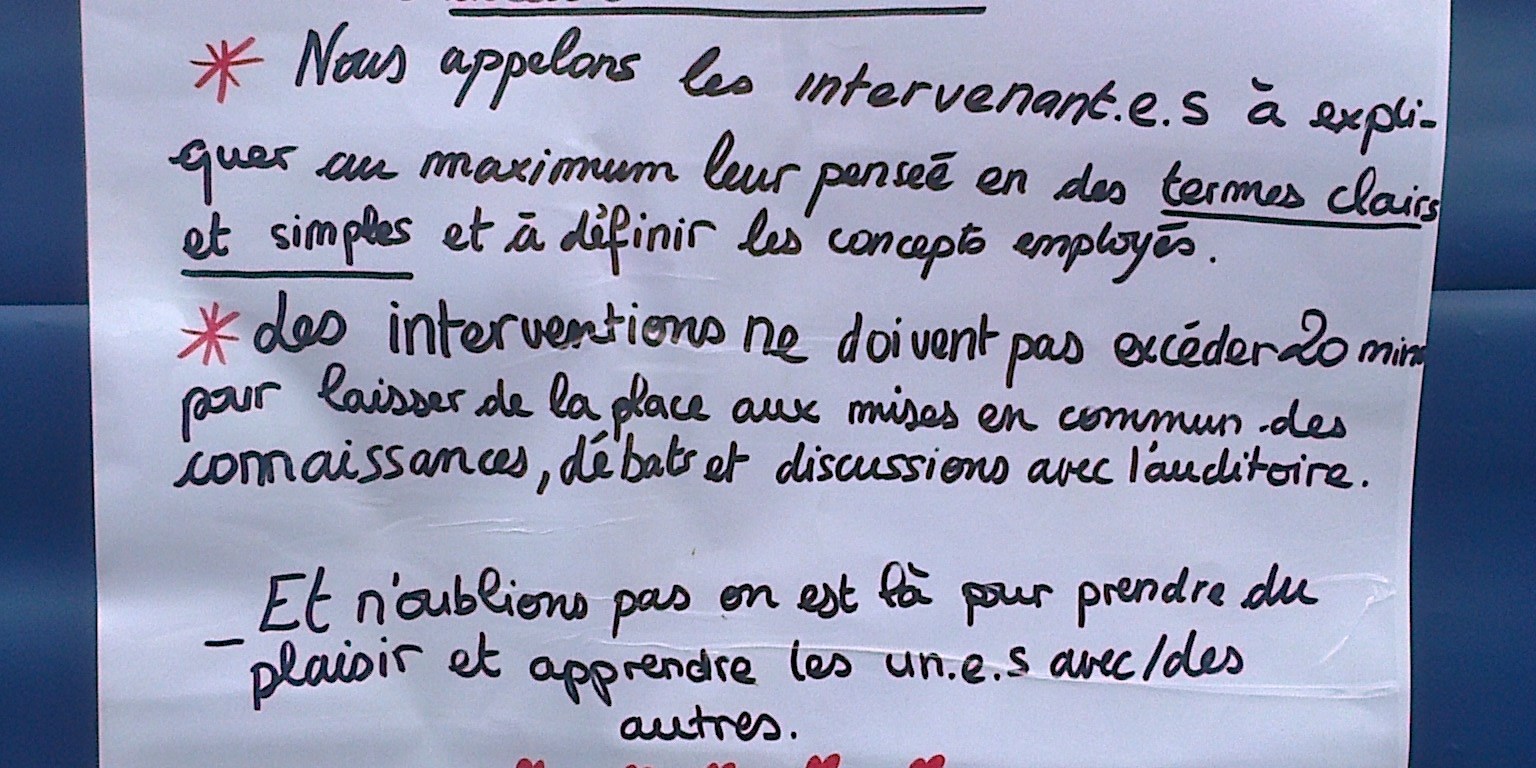 * Nous appelons les intervenant.e.s à expli-
quer au maximum leur pensée en des termes clairs
et simples et à définir les concepts employés.
* des interventions ne doivent pas excéder 20 min
pour laisser de la place aux mises en commun des
connaissances, débats et discussions avec l'auditoire.
Et n'oublions pas on est là pour prendre du
plaisir et apprendre les un.e.s avec/des
autres.